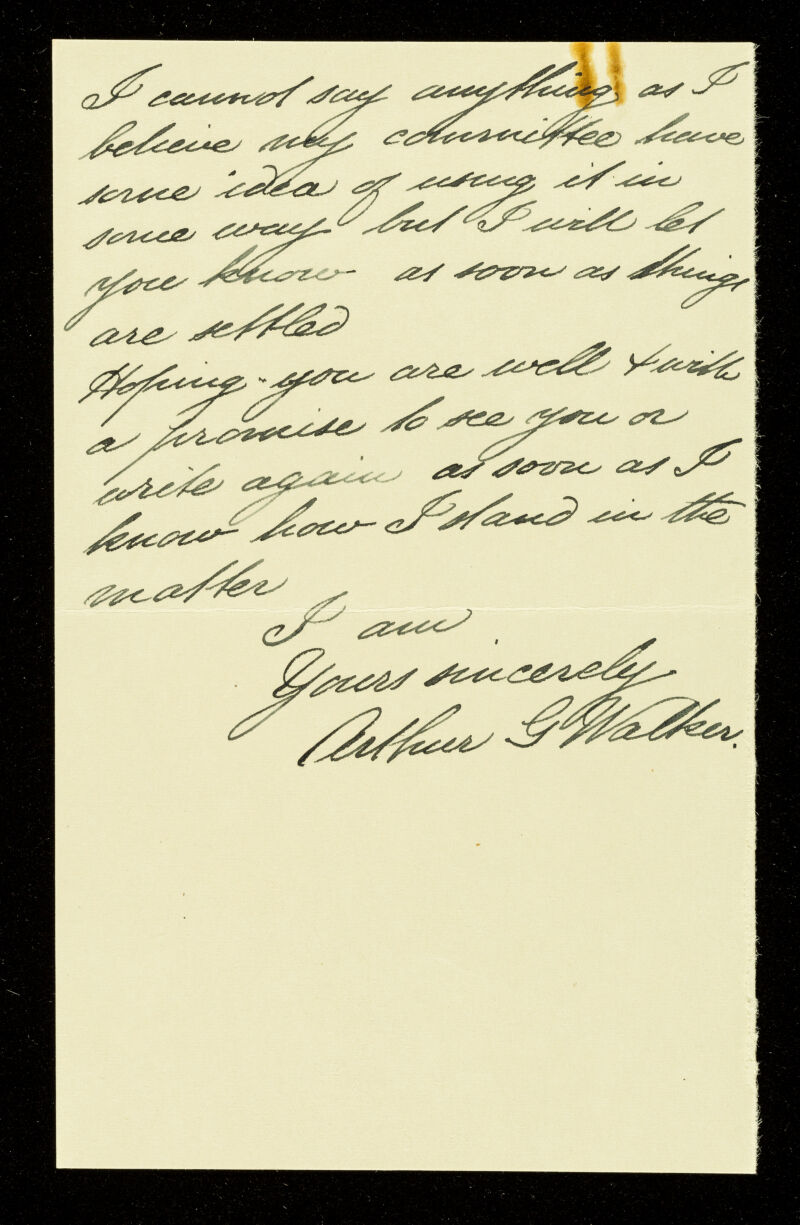 I cannot say anything as I
believe my committee have
some idea of using it in
some way but I will let
you know as soon as things
are settled
Hoping you are well & with
a promise to see you or
write again as soon as I
know how I stand in the
matter
I am
Yours sincerely
Arthur G Walker.